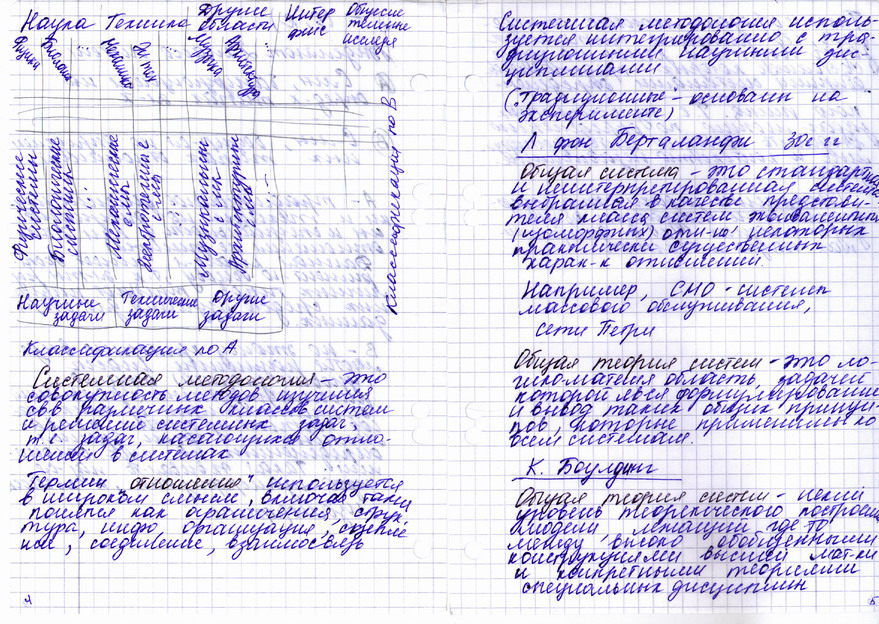 Наука Техника Другие области Интерфейс Общесистемные исследов
Физика
Биология
Механика
Эл тех
Музыка
Архитектура
Физические системы
Биологические системы
Механические с-мы
Электротехние с-мы
Музыкальные с-мы
Архитектурные с-мы
Классификация по В
Научные задачи
Технические задачи
Другие задачи
Классификация по А
Системная методология – это
совокупность методов изучения
св-в различных классов систем
и решение системных задач,
т.е. задач, касающихся отно-
шений в системах
Термин "отношения" используется
в широком смысле, включая такие
понятия как ограничения, струк-
тура, инфо организация, сцепле-
ние, соединение, взаимосвязь
4
Системная методология исполь-
зуется интегрированно с тра-
диционными научными дис-
циплинами
("традиционные" – основаны на
эксперименте)
Л фон Берталанфи 30е гг
Общая система – это стандартная
и неинтерпретированная система
выбранная в качестве представи-
теля класса систем эквивалентных
(изоморфных) отн-но некоторых
практически существенных
харак-к отношений.
Например, СМО – системы
массового обслуживания,
сети Петри
Общая теория систем – это ло-
гико-матем область, задачей
которой явся формулирование
и вывод таких общих принци-
пов, которые применимы ко
всем системам.
К. Боулдинг
Общая теория систем – некий
уровень теоретического построения
модели, лежащий где-то
между высоко обобщенными
конструкциями высшей мат-ки
и конкретными теориями
специальных дисциплин
5